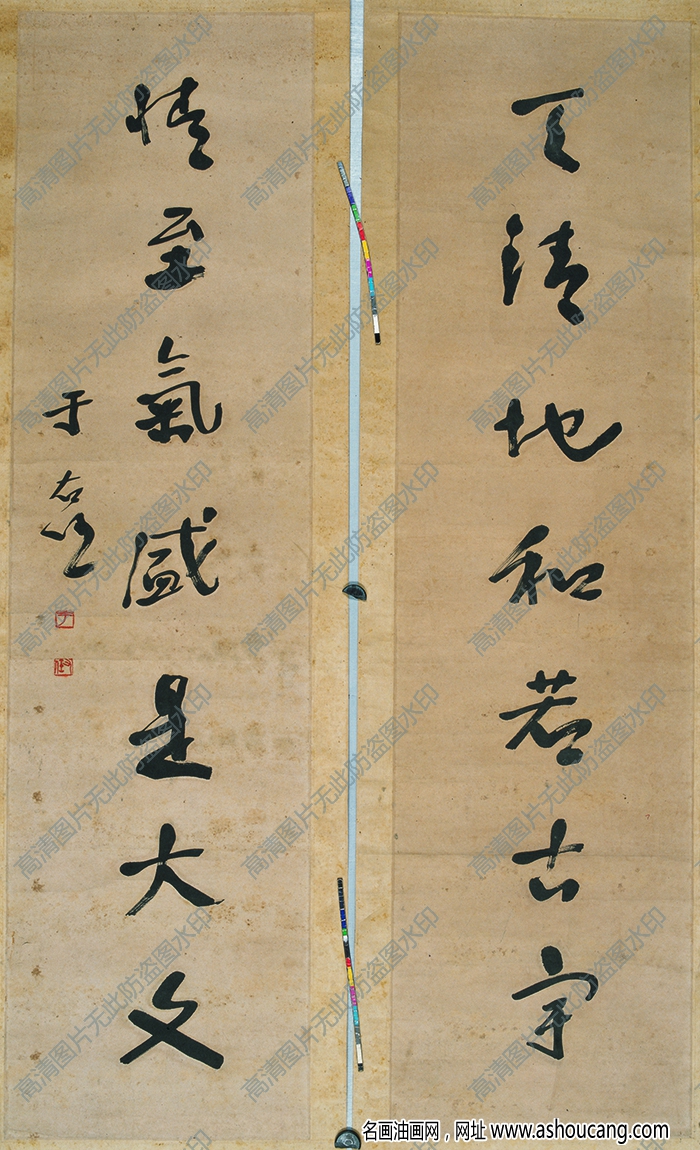 天清地和若古宇
情至氣盛是大文
于右任
高清图片无此防盗图水印
名画油画网，网址 www.ashoucang.com